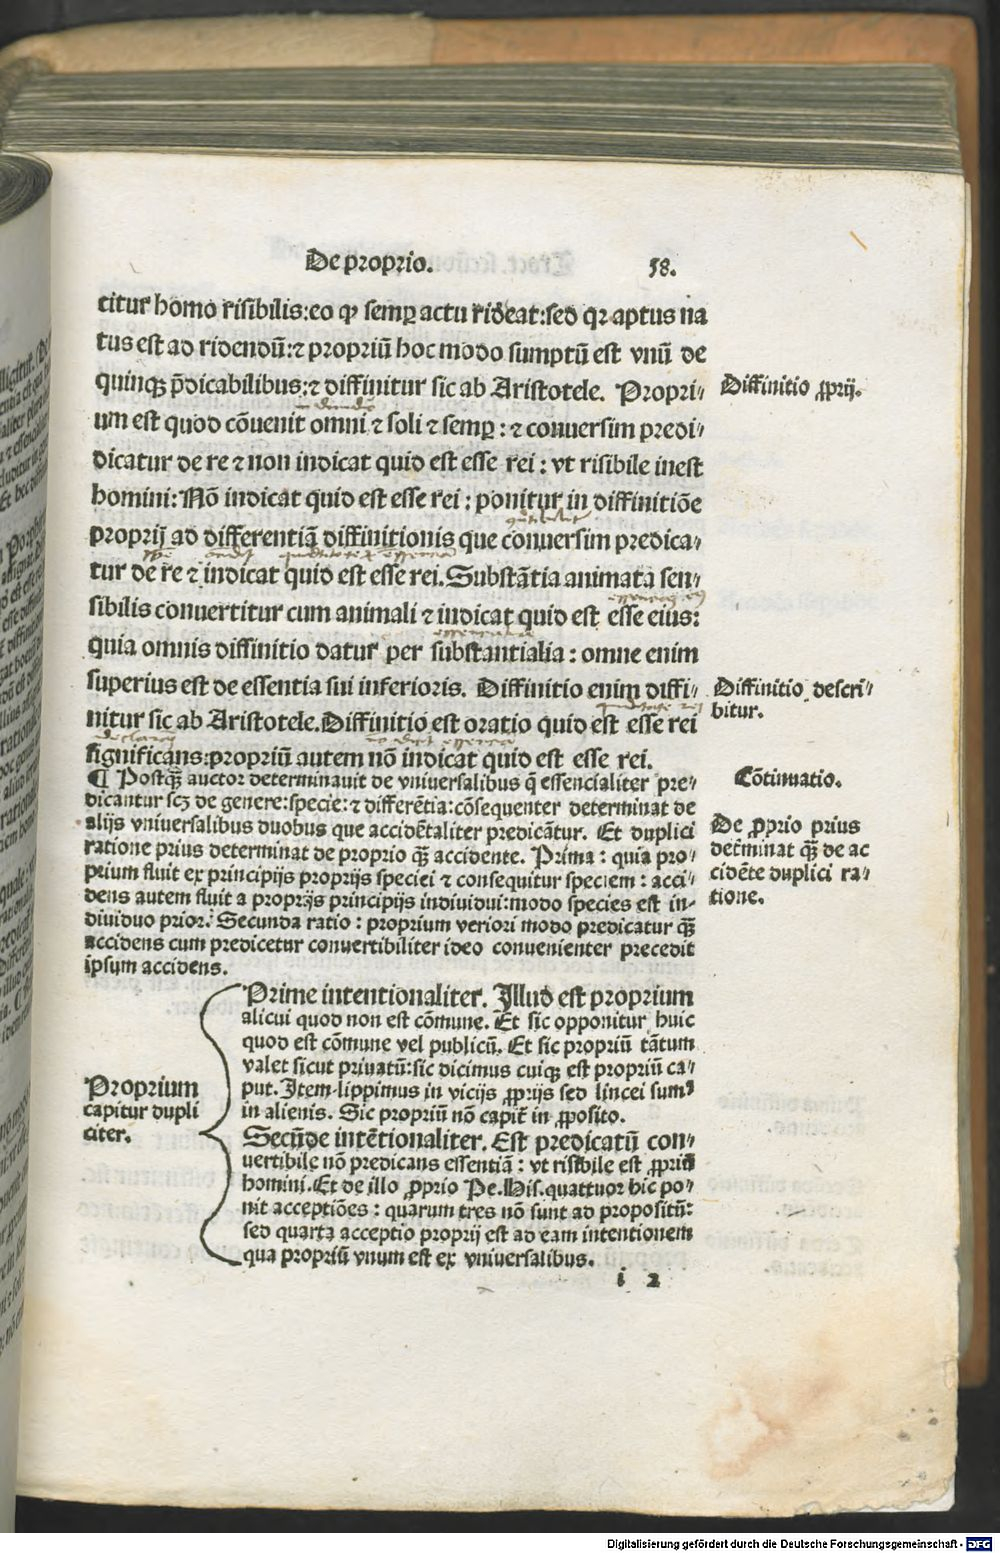 De proprio. 58.
citur homo risibilis:eo ꝙ semꝑ actu rideat:sed qꝛ aptus na
tus est ad ridendū:⁊ propriū hoc modo sumptū est vnū de
quinqꝫ p̄dicabilibus:⁊ diffinitur sic ab Aristotele. Propri⸗
um est quod cōuenit omni ⁊ soli ⁊ semꝑ: ⁊ conuersim predi⸗
dicatur de re ⁊ non indicat quid est esse rei: vt risibile inest
homini: Nō indicat quid est esse rei: ponitur in diffinitiōe
proprij ad differentiā diffinitionis que conuersim predica⸗
tur de re ⁊ indicat quid est esse rei. Substātia animata sen⸗
sibilis conuertitur cum animali ⁊ indicat quid est esse eius:
quia omnis diffinitio datur per substantialia: omne enim
superius est de essentia sui inferioris. Diffinitio enim diffi⸗
nitur sic ab Aristotele. Diffinitio est oratio quid est esse rei
significans:propriū autem nō indicat quid est esse rei.
¶ Postqꝫ̄ auctor determinauit de vniuersalibus q̄ essencialiter pre⸗
dicantur scꝫ de genere:specie:⁊ differētia:cōsequenter determinat de
alijs vniuersalibus duobus que accidētaliter predicātur. Et duplici
ratione prius determinat de proprio qꝫ̄ accidente. Prima: quia pro⸗
prium fluit ex principijs proprijs speciei ⁊ consequitur speciem: acci⸗
dens autem fluit a proprijs principijs indiuidui:modo species est in⸗
diuiduo prior. Secunda ratio: proprium veriori modo predicatur qꝫ̄
accidens cum predicetur conuertibiliter ideo conuenienter precedit
ipsum accidens.
Diffinitio ꝓprij.
Diffinitio descri⸗
bitur.
Cōtinuatio.
De ꝓprio prius
deter̄minat qꝫ̄ de ac
cidēte duplici ra⸗
tione.
Proprium
capitur dupli
citer.
Prime intentionaliter. Illud est proprium
alicui quod non est cōmune. Et sic opponitur huic
quod est cōmune vel publicū. Et sic propriū tātum
valet sicut priuatū:sic dicimus cuiqꝫ est propriū ca⸗
put. Item lippimus in vicijs ꝓprijs sed lincei sumꝰ
in alienis. Sic propriū nō capit̄ in ꝓposito.
Secūde intētionaliter. Est predicatū con⸗
uertibile nō predicans essentiā: vt risibile est ꝓpriū
homini. Et de illo ꝓprio Pe. His. quattuor hic po⸗
nit acceptiōes: quarum tres nō sunt ad propositū:
sed quarta acceptio proprij est ad eam intentionem
qua propriū vnum est ex vniuersalibus.
i 2
Digitalisierung gefördert durch die Deutsche Forschungsgemeinschaft - DFG